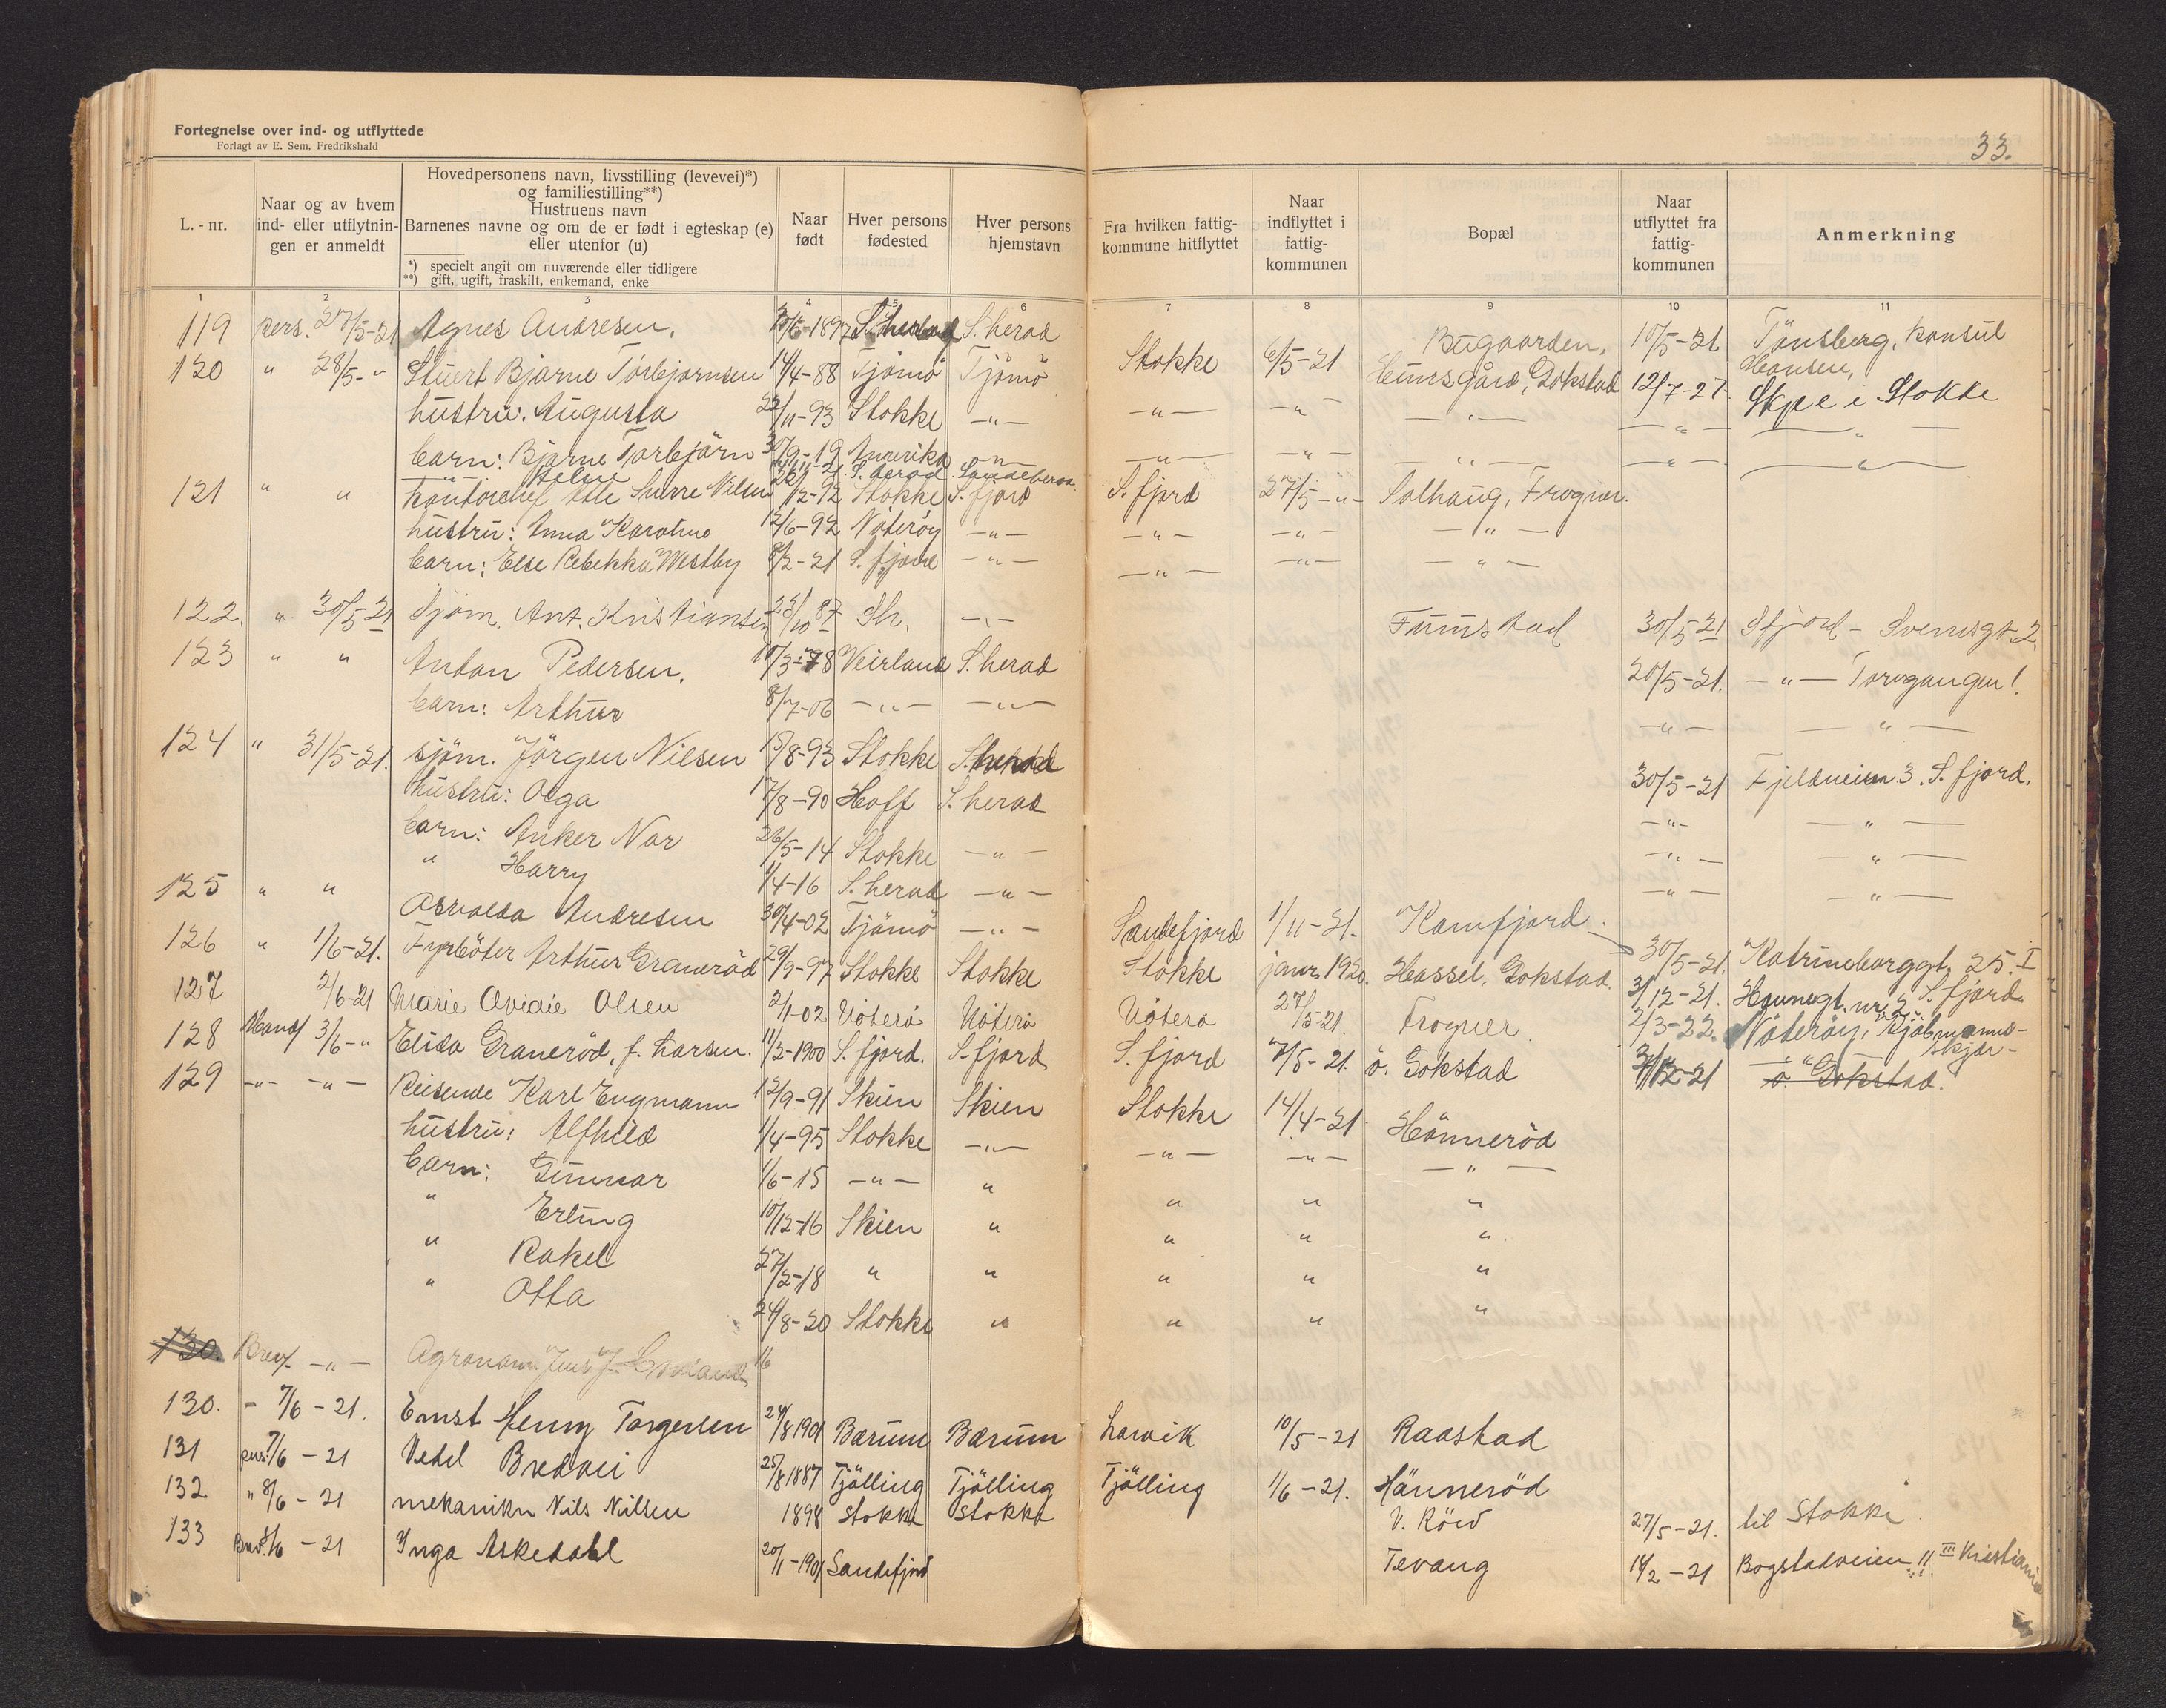 Fortegnelse over ind- og utflyttede
Forlagt av E. Sem, Fredrikshald
33.
L.-nr.
Naar og av hvem ind- eller utflytningen er anmeldt
Hovedpersonens navn, livsstilling (levevei)*)
og familiestilling**)
Hustruens navn
Barnenes navne og om de er født i egteskap (e)
eller utenfor (u)
*) specielt angit om nuværende eller tidligere
**) gift, ugift, fraskilt, enkemand, enke
Naar født
Hver persons fødested
Hver persons hjemstavn
Fra hvilken fattig-kommune hitflyttet
Naar indflyttet i fattig-kommunen
Bopæl
Naar utflyttet fra fattig-kommunen
Anmerkning
1 2 3 4 5 6 7 8 9 10 11
119 pers. 27/5-21 Agnes Andresen. /6-1897 S. herad Bugaarden. 10/5-21 Tönsberg, konsul Hansen,
120 " 28/5-" Bjarne Torbjørnsen 14/4-88 Tjömö Tjömö Stokke 6/5-21 Gokstad 12/7-27 i Stokke
hustru: Augusta 22/11-93 Stokke -"- -"- -"- -"- -"- -"-
barn: Bjarne Torbjörn 30/9-19 Amerika -"- -"- -"- -"- -"- -"-
S. herad
121 " " Nilsen /12-92 Stokke S. fjord S. fjord 27/5-"- Solhaug, Frogner.
hustru: Anna Karoline 12/6-92 Nöteröy -"- -"- -"- -"-
barn: Else Rebekka Westby 8/2-21 S. fjord -"- -"- -"- -"-
122. " 30/5-21 Sjøm. Ant. Kristiansen 23/10 87 Sh. -"- 30/5 21 Sfjord - 2.
123 " " Anton Pedersen. /3-78 Veirland S. herad 20/5-21. -"- Torvgangen 1.
barn: Arthur 8/7-06 -"- -"- -"- -"-
124 " 31/5-21. sjöm. Jörgen Nilsen 15/8-93 Stokke S. herad 30/5-21 Fjeldveien 3. S. fjord.
hustru: Olga 17/8-90 Hoff S. herad -"- -"-
barn: Anker 26/5-14 Stokke -"- -"- -"-
" Harry 1/4-16 S. herad -"- -"- -"-
125 " " Andresen 30/4-02 Tjömö -"- Sandefjord 1/11-21. Kamfjord. 30/5-21. Katrineborggt. 25. I
126 " 1/6-21. Fyrböter Arthur Graneröd 29/9-97 Stokke Stokke Stokke 1920. Hassel, Gokstad. 31/12-21. S. fjord.
127 2/6-21 Marie Olsen 2/1-02 Nöterö Nöterö Nöterö 27/5-21. Frogner 2/3-22. Nöteröy,
128 3/6-" Elida Graneröd, f. Larsen. 11/2-1900 S. fjord. S. fjord S. fjord 7/5-21. ö. Gokstad 31/12-21 -"- ö. Gokstad.
129 -"- -"- Reisende Karl Engmann 12/9-91 Skien Skien Stokke 14/4-21 Hönneröd
hustru: Alfhild 1/4-95 Stokke -"- -"- -"- -"-
barn: Gunnar 1/6-15 -"- " " " "
" Erling 10/12-16 Skien " " " "
" Rakel 27/2-18 " " " " "
" Otta 24/8-20 Stokke " " " "
130. Brev -"- Agronom Jens J. 16
130. - 7/6-21. Ernst Henry Torgersen 24/8 1901 Bærum Bærum Larvik 10/5-21 Raastad
131 pers. 7/6-21 Vedel 25/8 1887 Tjölling Tjölling Tjölling 1/6-21. Hänneröd
132 " 8/6-21 mekaniker Nils Nilsen 1898 Stokke Stokke V. Röid 27/5-21. til Stokke
133 Brev. /6-21 Inga Askedahl 20/11-1901 Sandefjord Tevang 14/2-21 Bogstadveien 11 III Kristiania